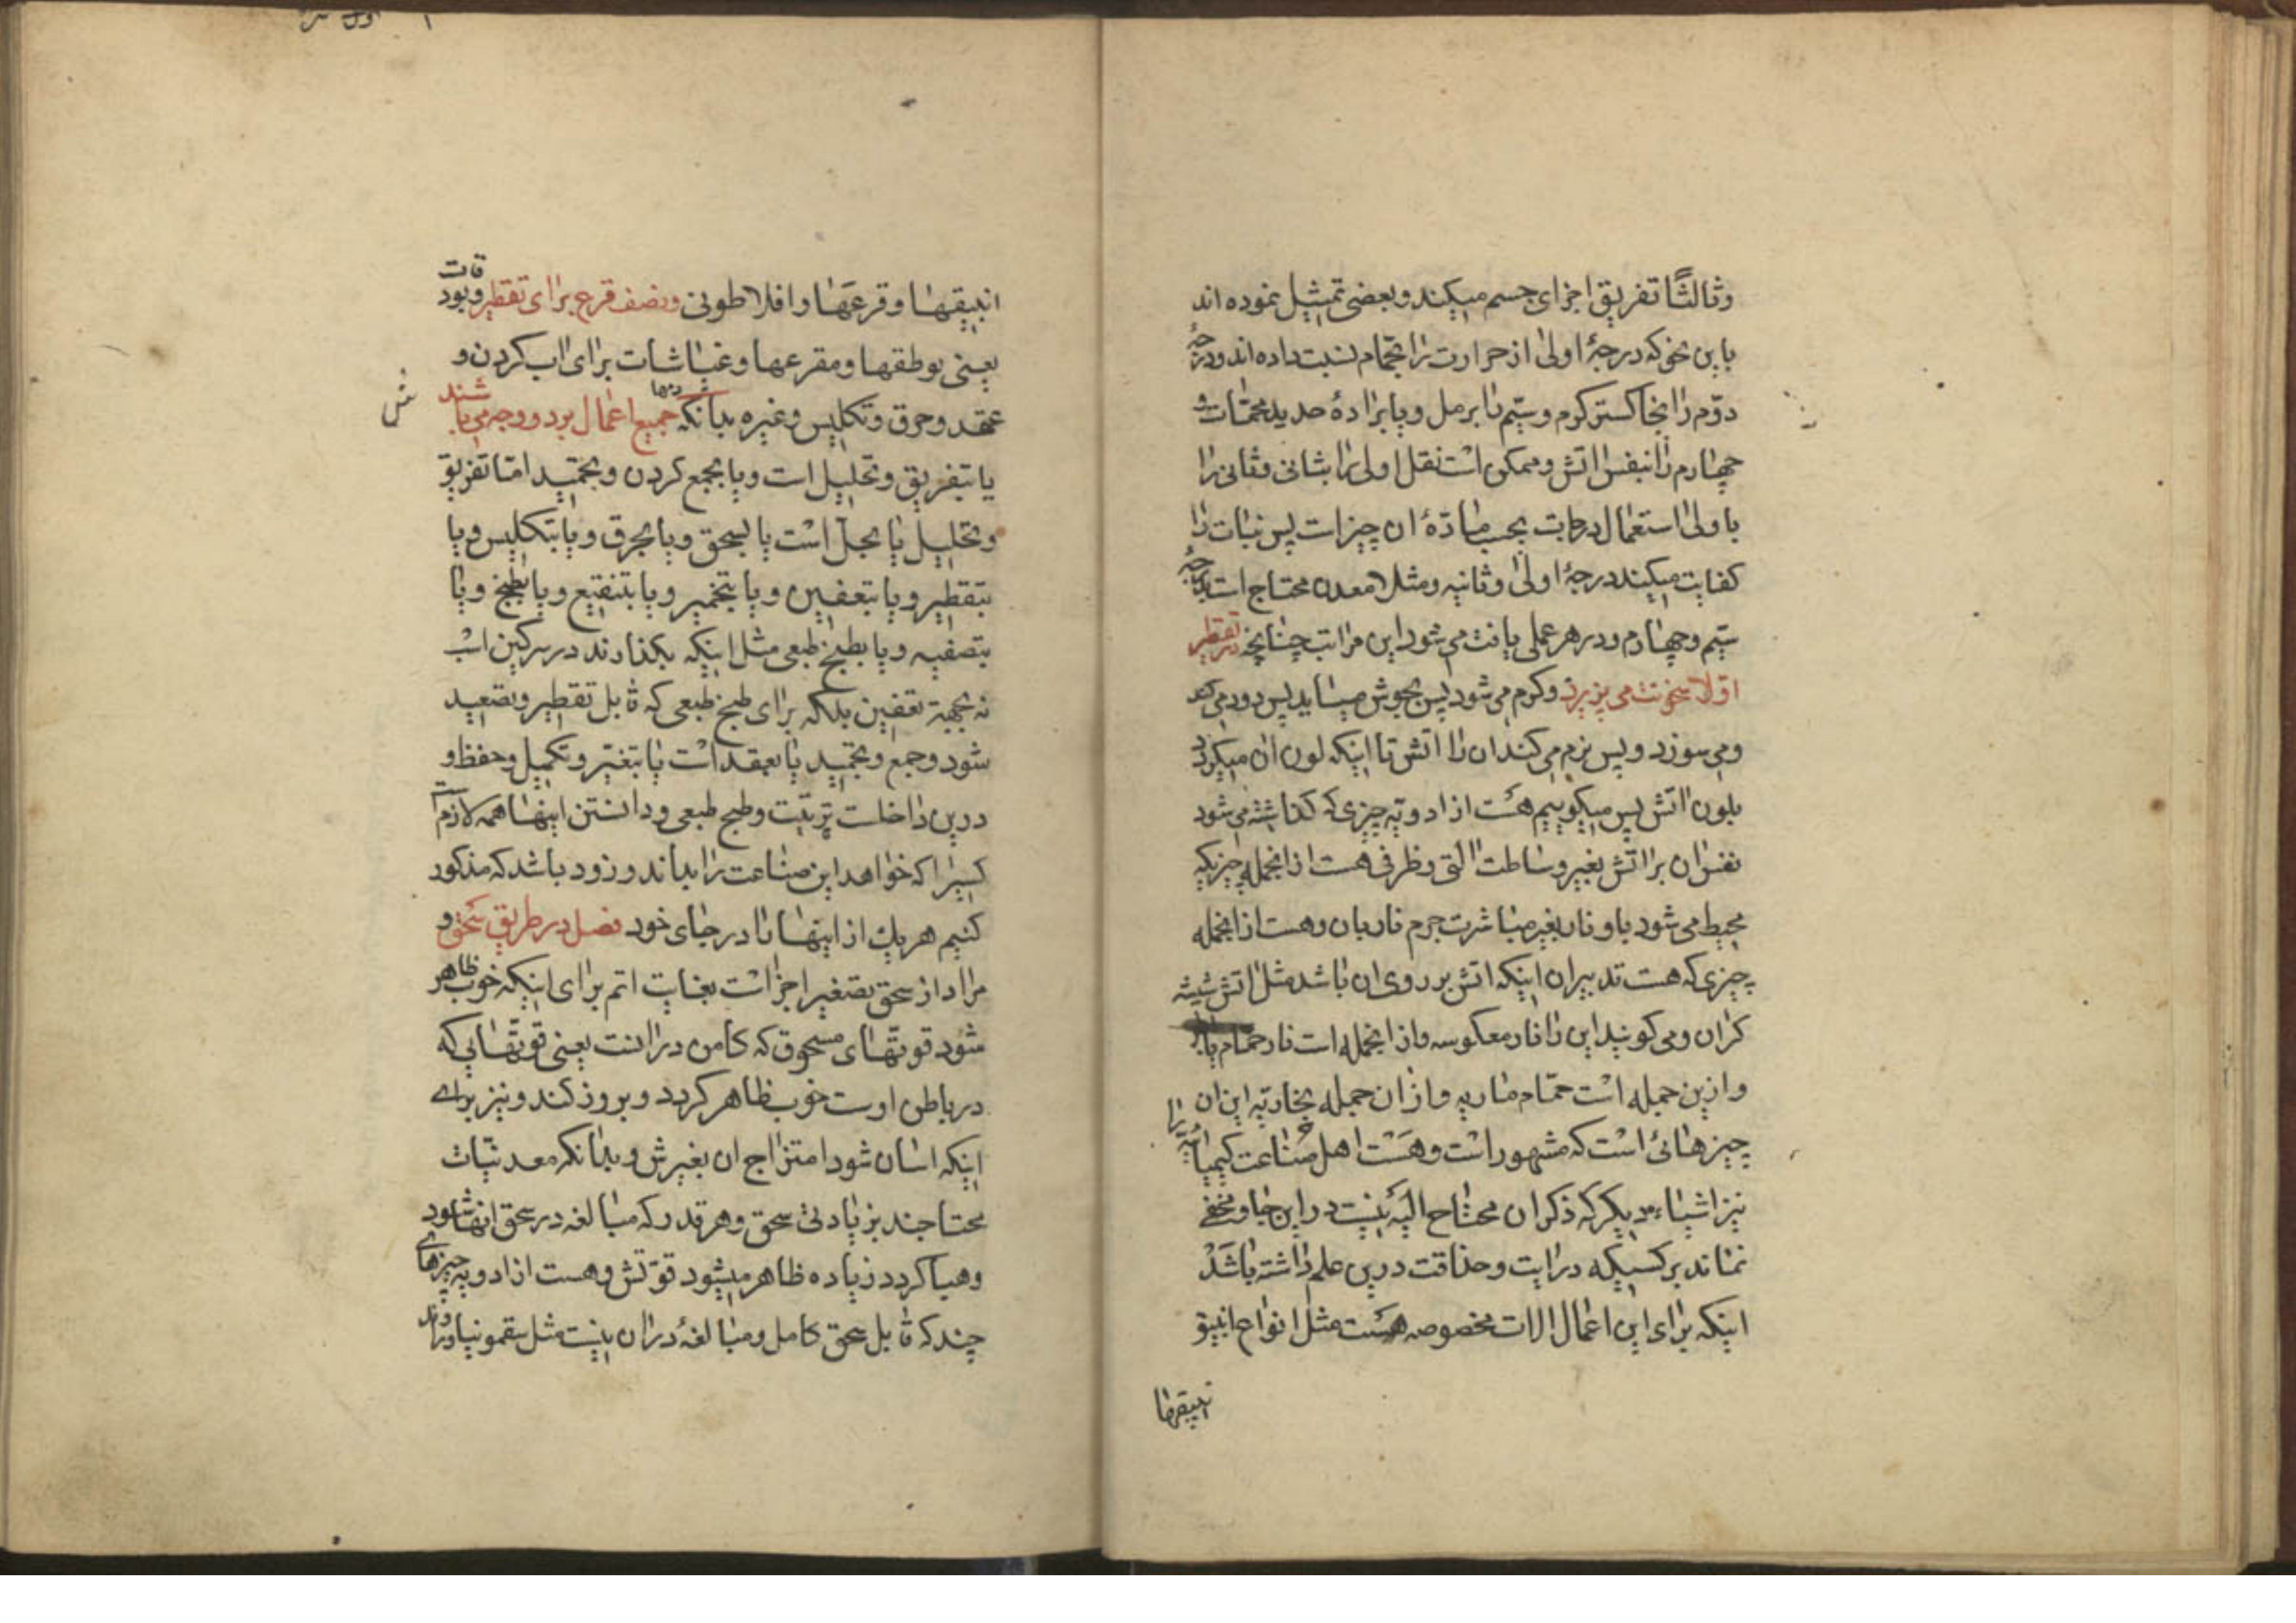 وثالثًا تفریق اجزای جسم میکند و بعضی تمثیل نموده اند
باین نحو که درجهٔ اولیٰ از حرارت را بحمّام نسبت داده اند و درجهٔ
دوّم را بخاکستر کرم و سیّم را برمل و یا برادهٔ حدید محمّات و
چهارم را بنفس اتش و ممکن است نقل اولی را بثانی و ثانی را
باولیٰ استعمال درجات بحسب مادّهٔ ان چیز است پس نبات را
کفایت میکند درجهٔ اولیٰ و ثانیه و مثلا معدن محتاج است بدرجهٔ
سیّم و چهارم و در هر عملی یافت می شود این مراتب چنانچه در تقطیر
اوّلا سخونت می پزیرد و کرم می شود پس بجوش میاید پس دود می کند
و می سوزد و پس نرم می کند ان را اتش تا اینکه لون ان میکردد
بلون اتش پس میکوییم هست از ادویّه چیزی که کذاشته می شود
نفس ان بر اتش بغیر وساطت التی و ظرفی هست از انجمله چیزیکه
محیط می شود باو نار بغیر مباشرت جرم نار بان و هست از انجمله
چیزی که هست تدبیر ان اینکه اتش بر روی ان باشد مثل اتش شیشه
کران و می کویند این را نار معکوسه و از انجمله است نار حمّام یابس
و ازین جمله است حمّام ماریه و از ان جمله بخاریّه این ان
چیزهائی است که مشهور است و هست اهل صناعت کیمیائیّه را
نیز اشیاء دیکر که ذکر ان محتاح الیه نیست در این جا و مخفی
نماند بر کسیکه درایت و حذاقت درین علم داشته باشد
اینکه برای این اعمال الات مخصوصه هست مثل انواع انبیق
انبیقها
انبیقها و قرعها و افلاطونی و نصف قرع برای تقطیر و بودقات
یعنی بوطقها و مقرعها و غباشات برای اب کردن و
عقد و حرق و تکلیس و غیره بدانکه جمیع اعمال بر دو وجه می باشند
یا بتفریق و تحلیل است و یا بجمع کردن و بجمید امّا تفریق
و تحلیل یا بحلّ است یا بسحق و یا بحرق و یا بتکلیس و یا
بتقطیر و یا بتعفین و یا بتخمیر و یا بتنقیع و یا بطبخ و یا
بتصفیه و یا بطبخ طبعی مثل اینکه بکذارند در سرکین اسب
نه بجهة تعفین بلکه برای طبخ طبعی که قابل تقطیر و تصعید
شود و جمع و بجمید یا بعقد است یا بتغییر و تکمیل و حفظ و
درین داخلست تربیّت و طبخ طبعی و دانستن اینها همه لازم است
کسیرا که خواهد این صناعت را بداند و زود باشد که مذکور
کنیم هر یك از اینها را در جای خود فصل در طریق سحق و
مراد از سحق تصغیر اجزا است بغایت اتم برای اینکه خوب ظاهر
شود قوتهای مسحوق که کامن در انست یعنی قوتهایی که
در باطن اوست خوب ظاهر کردد و بروز کند و نیز برای
اینکه اسان شود امتزاج ان بغیرش و بدانکه معدنیّات
محتاجند بزیادتی سحق و هر قدر که مبالغه در سحق انها شود
و هبا کردد زیاده ظاهر میشود قوّتش و هست از ادویه چیزهای
چند که قابل سحق کامل و مبالغهٔ در ان نیست مثل سقمونیا